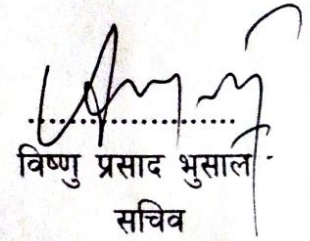 विष्णु प्रसाद भुसाल
सचिव